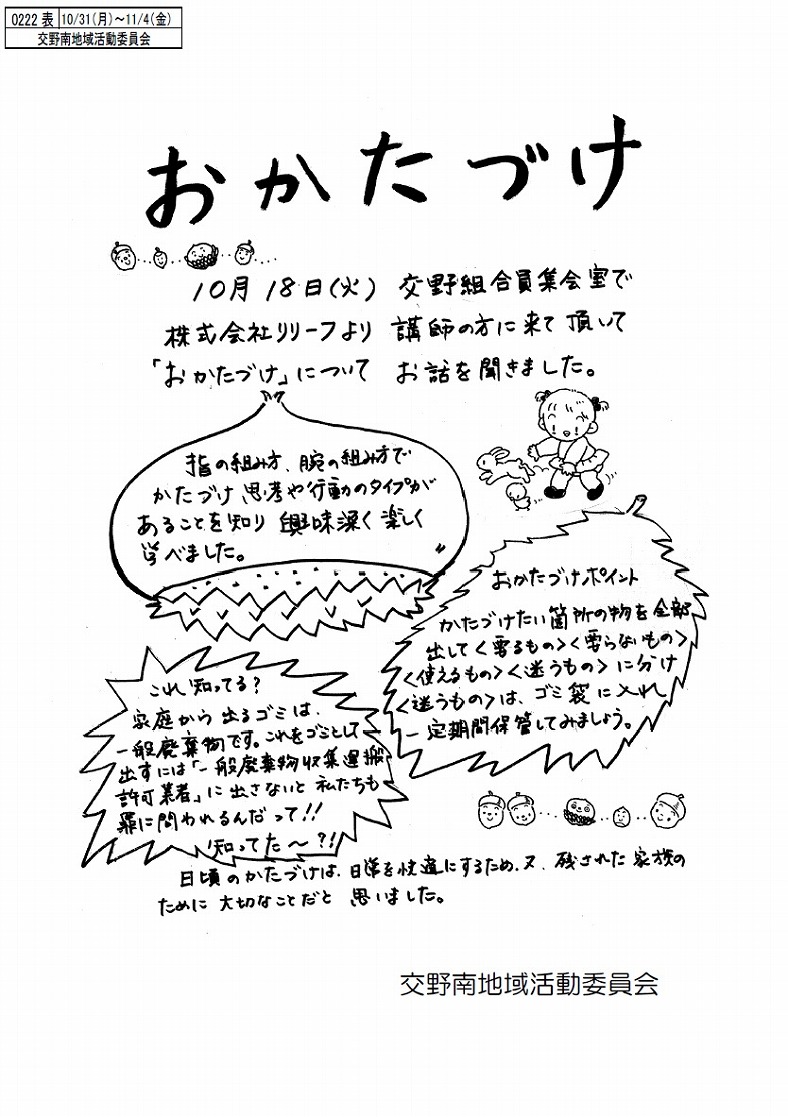 0222 表 10/31(月)~11/4(金)
交野南地域活動委員会
おかたづけ
10月18日(火) 交野組合員集会室で
株式会社リリーフより 講師の方に来て頂いて
「おかたづけ」について お話を聞きました。
指の組み方、腕の組み方で
かたづけ思考や行動のタイプが
あることを知り 興味深く楽しく
学べました。
おかたづけポイント
かたづけたい箇所の物を全部
出して<要るもの><要らないもの>
<使えるもの><迷うもの>に分け
<迷うもの>は、ゴミ袋に入れ
一定期間保管してみましょう。
これ知ってる?
家庭から出るゴミは、
一般廃棄物です。これをゴミとして
出すには「一般廃棄物収集運搬
許可業者」に出さないと私たちも
罪に問われるんだって!!
知ってた~?!
日頃のかたづけは、日常を快適にするため、又、残された家族の
ために大切なことだと 思いました。
交野南地域活動委員会